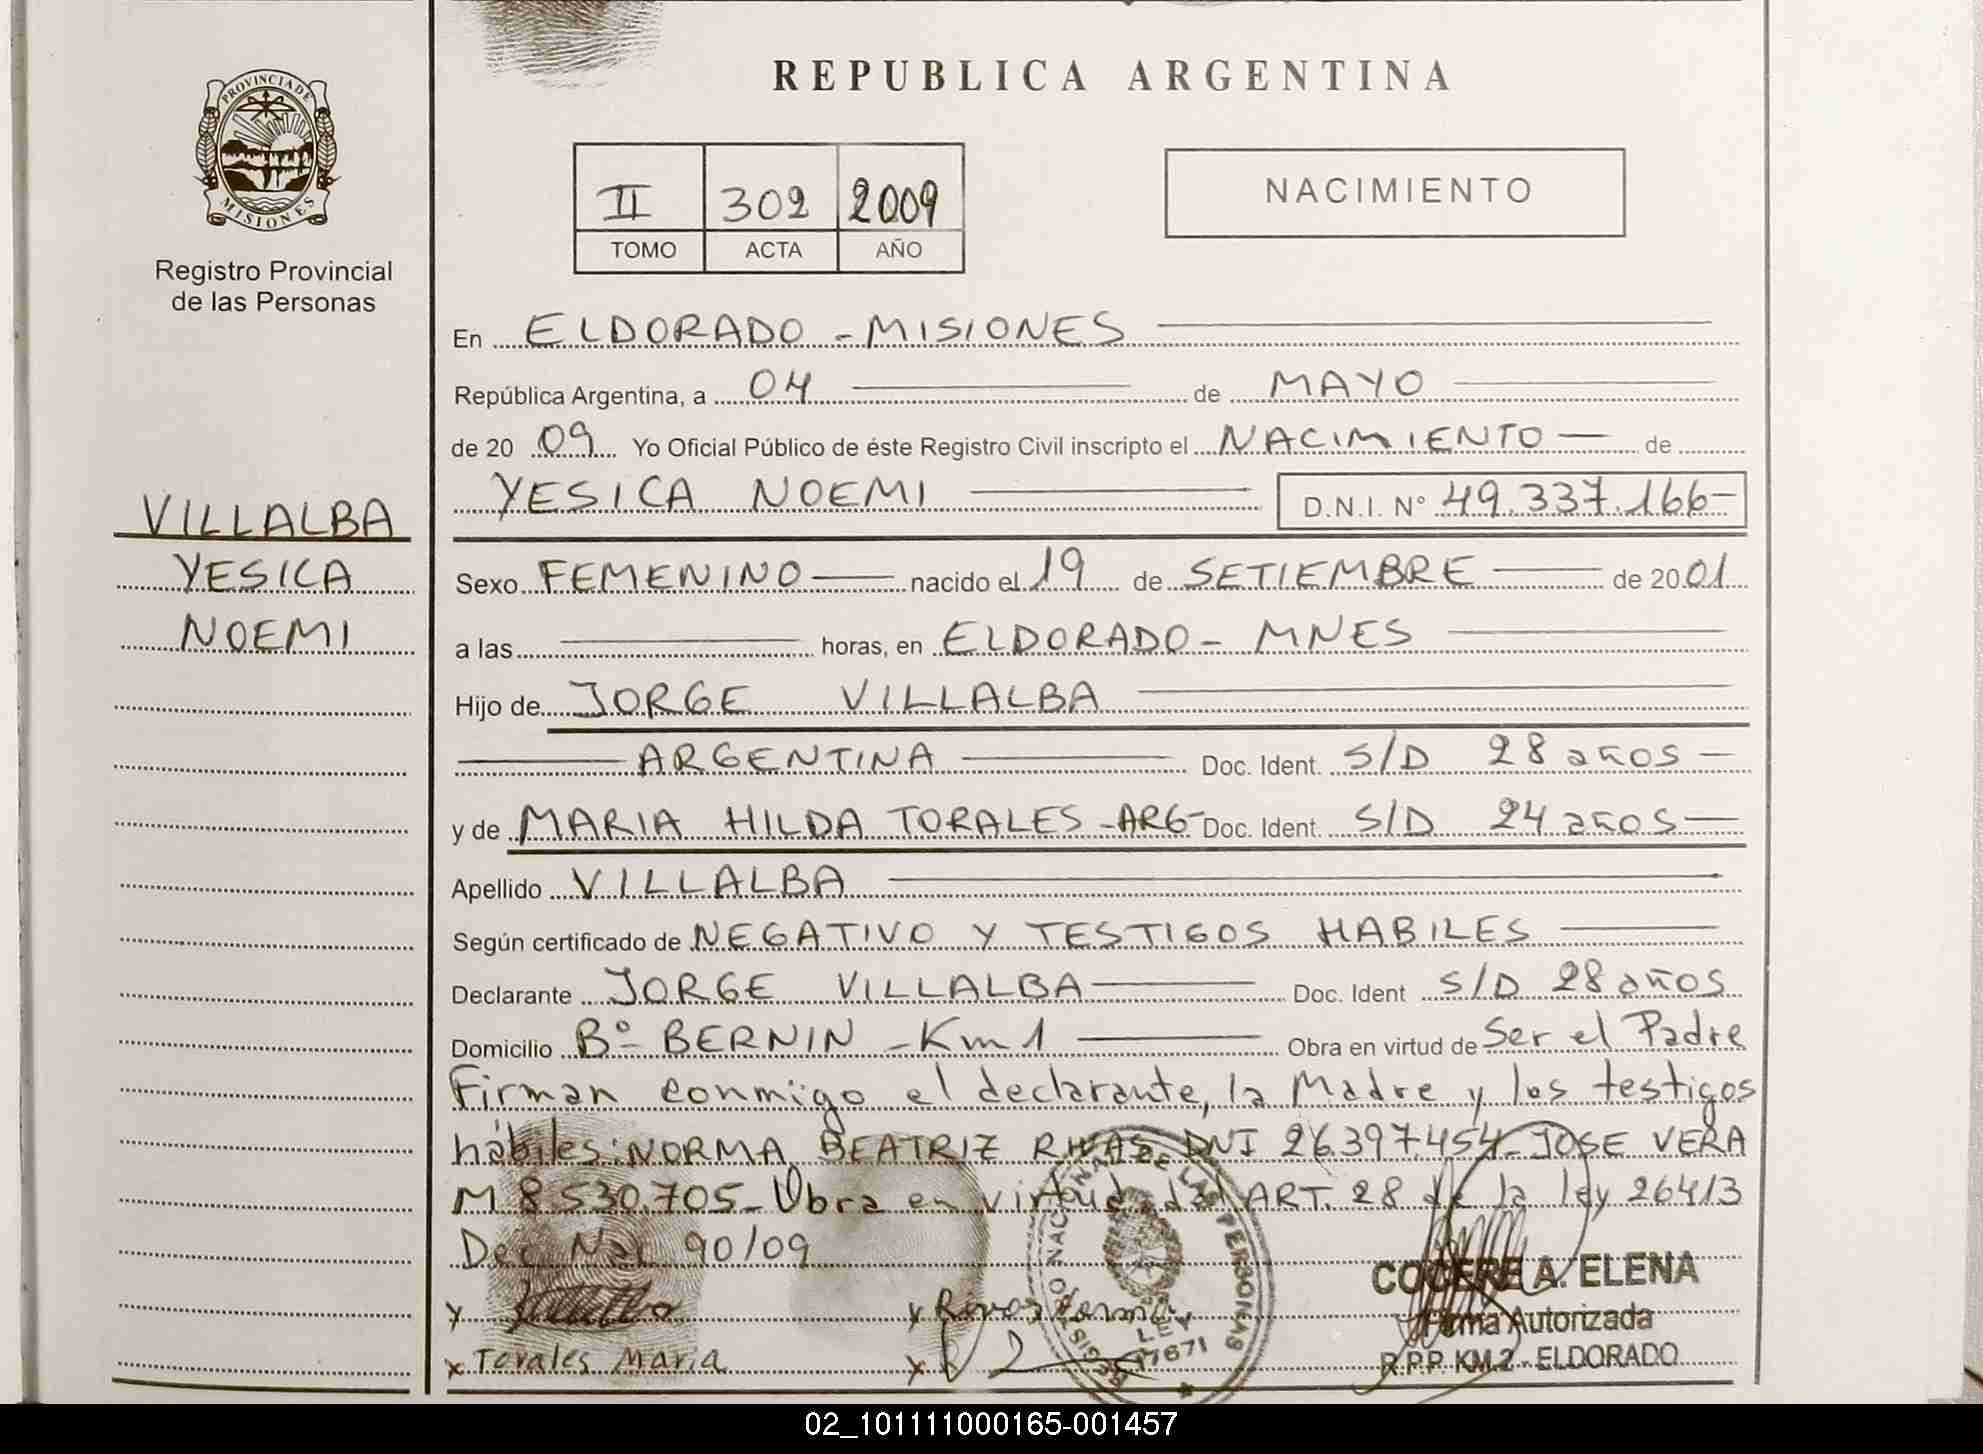 PROVINCIA DE
MISIONES
Registro Provincial
de las Personas
VILLALBA
YESICA
NOEMI
REPUBLICA ARGENTINA
II 302 2009
TOMO ACTA AÑO
NACIMIENTO
En ELDORADO - MISIONES
República Argentina, a 04 de MAYO
de 20 09 Yo Oficial Público de éste Registro Civil inscripto el NACIMIENTO de
YESICA NOEMI D.N.I. Nº 49.337.166-
Sexo FEMENINO nacido el 19 de SETIEMBRE de 2001
a las horas, en ELDORADO - MNES
Hijo de JORGE VILLALBA
ARGENTINA Doc. Ident. S/D 28 años
y de MARIA HILDA TORALES - ARG- Doc. Ident. S/D 24 años
Apellido VILLALBA
Según certificado de NEGATIVO Y TESTIGOS HABILES
Declarante JORGE VILLALBA Doc. Ident S/D 28 años
Domicilio Bº BERNIN - Km 1 Obra en virtud de Ser el Padre
Firman conmigo el declarante, la Madre y los testigos
hábiles: NORMA BEATRIZ RIVAS DNI 26.397.454- JOSE VERA
M 8.530.705- Obra en virtud del ART. 28 de la ley 26413
Dec Nac 90/09
x x Rivas Norma
x Torales Maria x
REGISTRO NACIONAL DE LAS PERSONAS
LEY
17671
COCERE A. ELENA
Firma Autorizada
R.P.P. KM.2 - ELDORADO
02_101111000165-001457